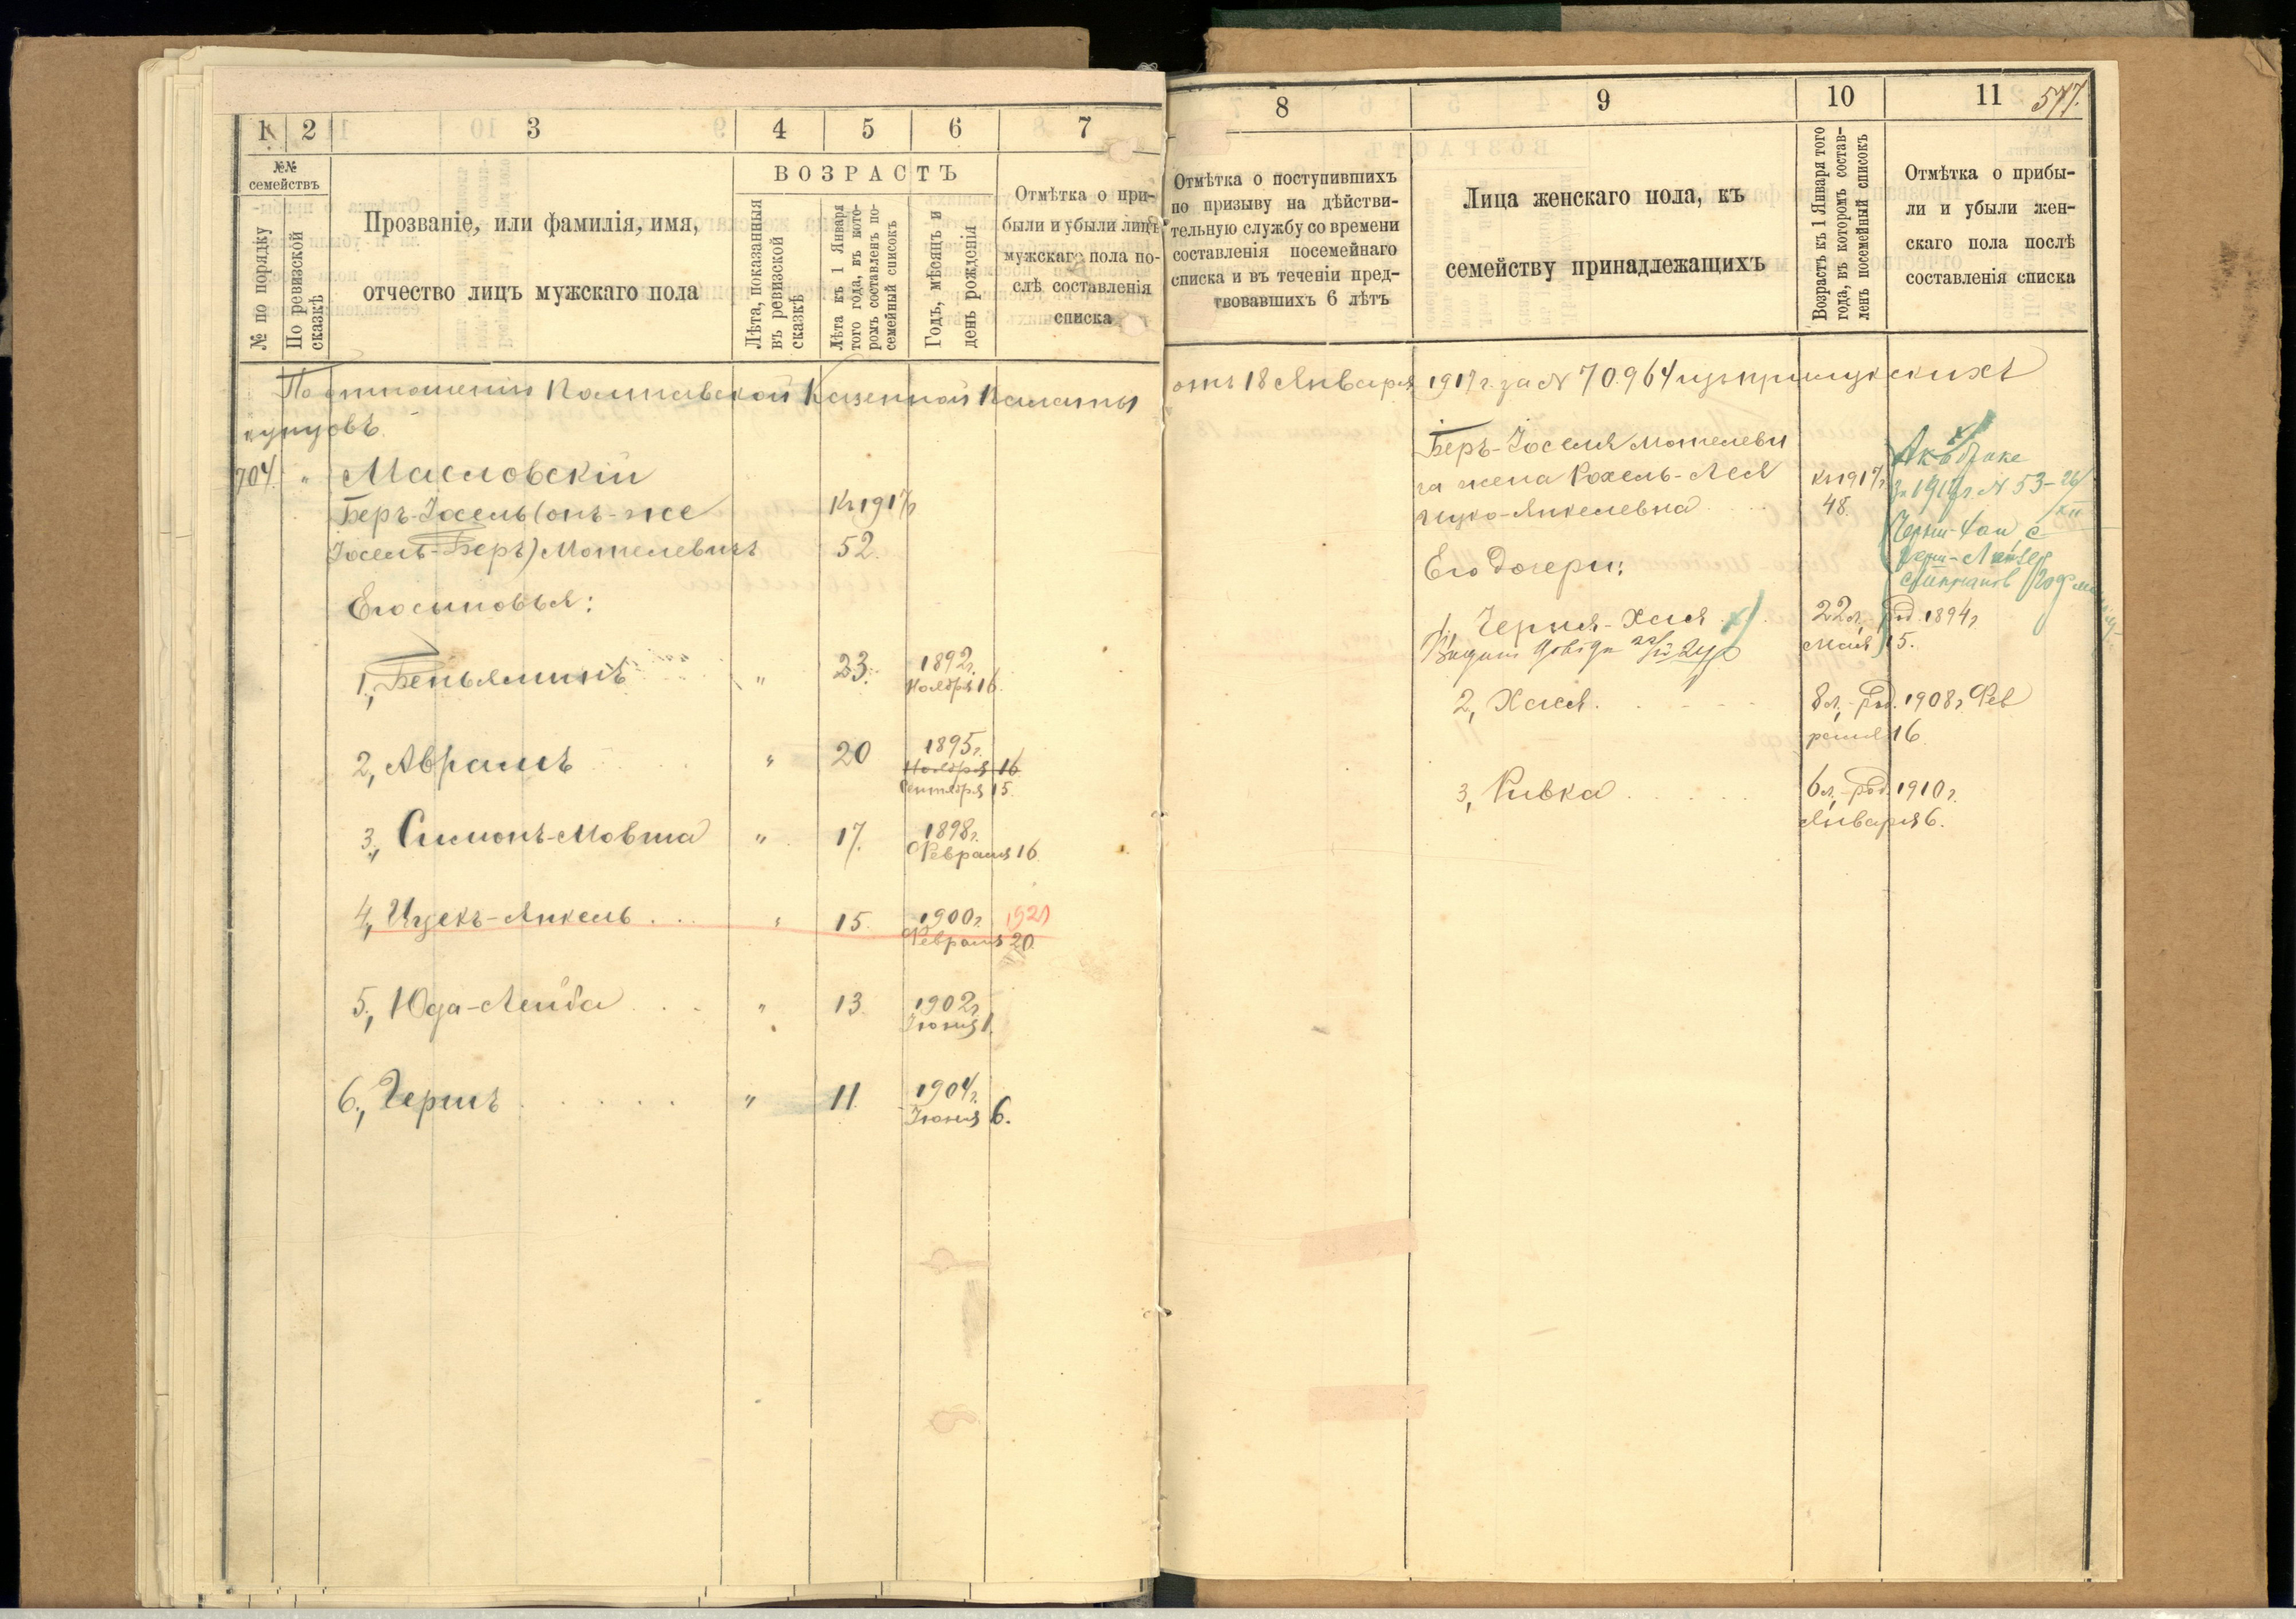 1 2 3 4 5 6 7
№№ семействъ
№ по порядку
По ревизской сказкѣ
Прозваніе, или фамилія, имя,
отчество лицъ мужскаго пола
ВОЗРАСТЪ
Лѣта, показанныя
въ ревизской
сказкѣ
Лѣта къ 1 Января
того года, въ кото-
ромъ составленъ по-
семейный списокъ
Годъ, мѣсяцъ и
день рожденія
Отмѣтка о при-
были и убыли лицъ
мужскаго пола по-
слѣ составленія
списка
8 9 10 11 577.
Отмѣтка о поступившихъ
по призыву на дѣйстви-
тельную службу со времени
составленія посемейнаго
списка и въ теченіи пред-
твовавшихъ 6 лѣтъ
Лица женскаго пола, къ
семейству принадлежащихъ
Возрастъ къ 1 Января того
года, въ которомъ состав-
ленъ посемейный списокъ
Отмѣтка о прибы-
ли и убыли жен-
скаго пола послѣ
составленія списка
По отношенію Полтавской Казенной Палаты отъ 18 Января 1917 г. за № 70.964 изъ прилукскихъ
купцовъ
704. " Масловскій
Беръ-Іосель (онъ-же Къ 1917 г.
Іосель-Беръ) Мотелевичъ 52.
Его сыновья:
1, Беньяминъ " 23. 1892 г.
Ноября 16.
2, Аврамъ " 20 1895 г.
Ноября 16
Сентября 15.
3, Симонъ-Мовша " 17. 1898 г.
Февраля 16
4, Ицекъ-Янкель " 15. 1900 г. 1921
Февраля 20.
5, Юда-Лейба " 13 1902 г.
Іюня 1.
6, Гершъ " 11. 1904 г.
Іюня 6.
Беръ-Іоселя Мотелеви
ча жена Рохель-Лея Къ 1917 г.
Ицко-Янкелевна 48.
Его дочери:
1, Черня-Хая 22 л., род. 1894 г.
Мая 15.
2, Хася 8 л., род. 1908 г. Фев
раля 16
3, Ривка 6 л., род. 1910 г.
Января 6.
Акъ браке
за 1917 г. № 53 - 26/XII